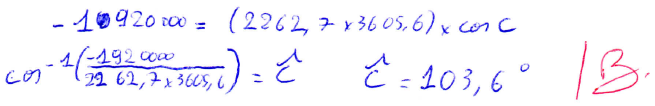 -10920000 = (2262,7 x 3605,6) x cos C
cos⁻¹(-1920000 / 2262,7 x 3605,6) = Ĉ Ĉ = 103,6° /B.